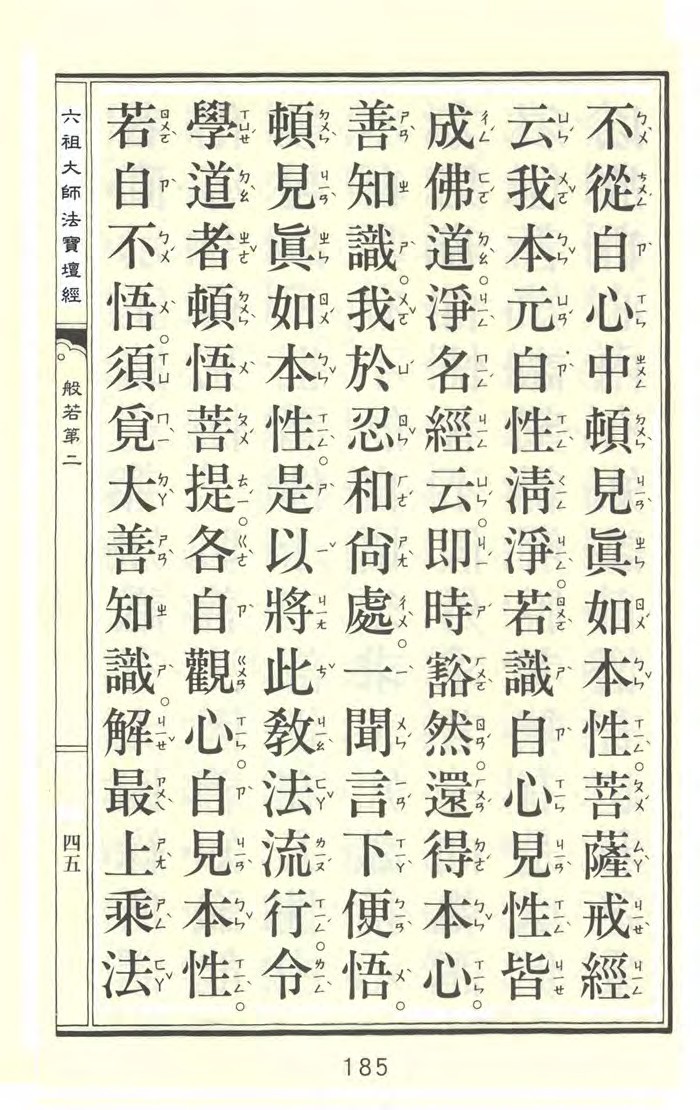 不從自心中頓見眞如本性。菩薩戒經
云我本元自性淸淨。若識自心見性皆
成佛道。淨名經云。即時豁然。還得本心。
善知識。我於忍和尙處。一聞言下便悟。
頓見眞如本性。是以將此敎法流行。令
學道者頓悟菩提。各自觀心。自見本性。
若自不悟。須覓大善知識。解最上乘法
六祖大師法寶壇經
般若第二
四五
185